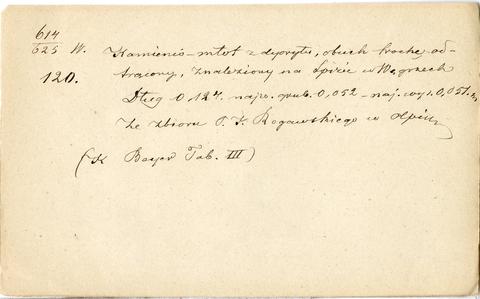 614
625 W. Kamienis-młot z dyorytu, obuch trochę od-
120. trącony, znaleziony na Spiżu w Węgrzech
Dług 0,124. najw. grub. 0,052 - naj. wys. 0,051. m
Ze zbioru P. K. Rogawskiego w Ołpin
(K Beyer Tab. III)